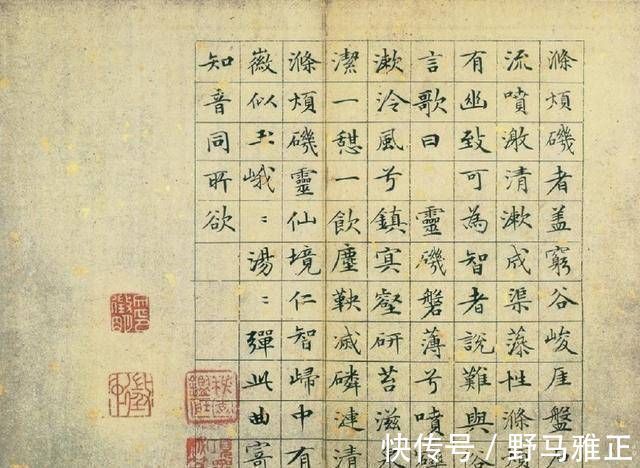 滌煩磯者盖窮谷峻厓盤
流噴激清漱成渠藻性滌
有幽致可為智者說難與
言歌曰 靈磯磐薄兮噴
漱泠風兮鎮冥壑研苔滋
潔一憩一飲塵鞅滅磷漣清
滌煩磯靈仙境仁智歸中有
徽似玉峨〻湯〻彈此曲寄
知音同所欲
快传号／野马雅正